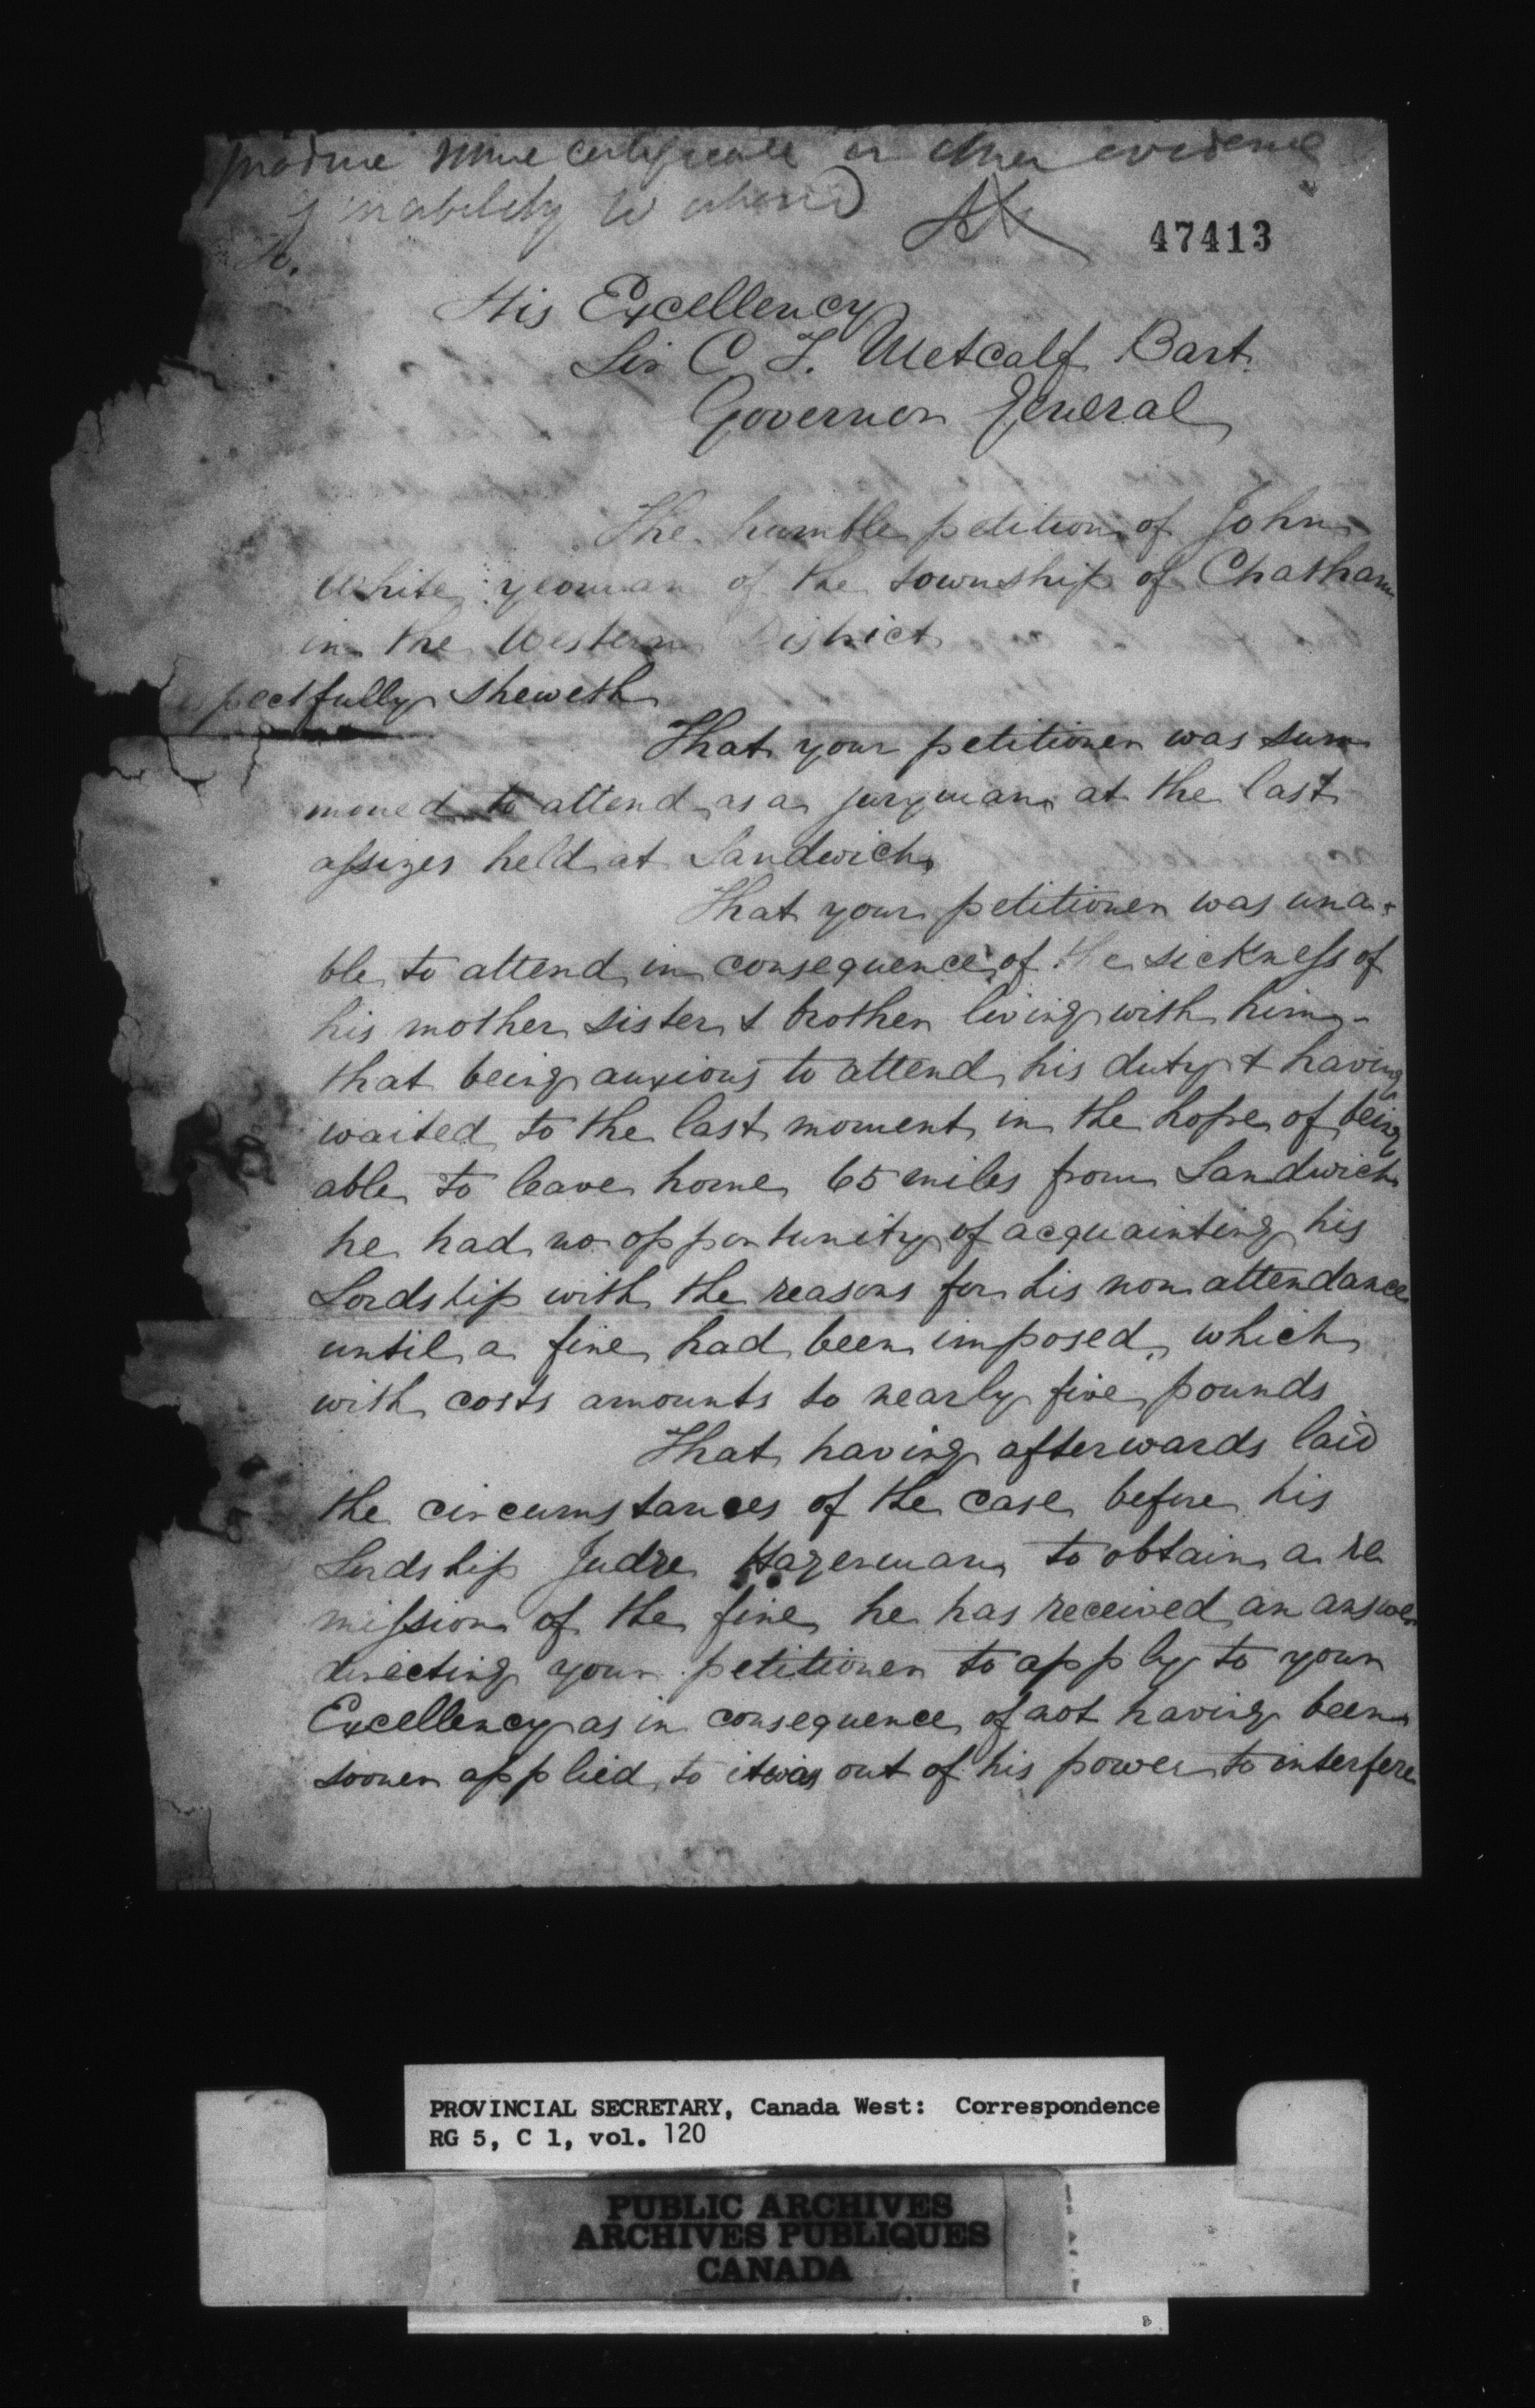 produce some certificate or other evidence
of inability to attend
47413
To.
His Excellency
Sir C T. Metcalf Bart.
Governor General
The humble petition of John
White yeoman of the township of Chatham
in the Western District
pectfully sheweth
That your petitioner was sum
moned to attend as a juryman at the last
assizes held at Sandwich
That your petitioner was una-
ble to attend in consequence of the sickness of
his mother sister & brother living with him -
that being anxious to attend his duty & having
waited to the last moment in the hope of being
able to leave home 65 miles from Sandwich
he had no opportunity of acquainting his
Lordship with the reasons for his non attendance
until a fine had been imposed, which
with costs amounts to nearly five pounds
That having afterwards laid
the circumstances of the case before his
Lordship Judge Hagerman to obtain a re
mission of the fine he has received an answer
directing your petitioner to apply to your
Excellency as in consequence of not having been
sooner applied to it was out of his power to interfere
PROVINCIAL SECRETARY, Canada West: Correspondence
RG 5, C 1, vol. 120
PUBLIC ARCHIVES
ARCHIVES PUBLIQUES
CANADA